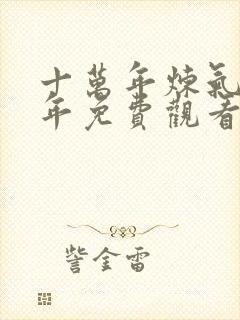 十萬年煉氣
年免費觀看
訾金雷